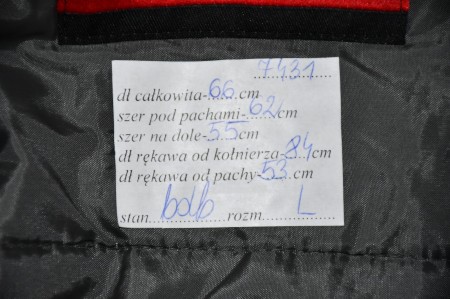 7431
dł całkowita-66cm
szer pod pachami-62cm
szer na dole-55cm
dł rękawa od kołnierza-84cm
dł rękawa od pachy-53cm
stan bdb rozm. L